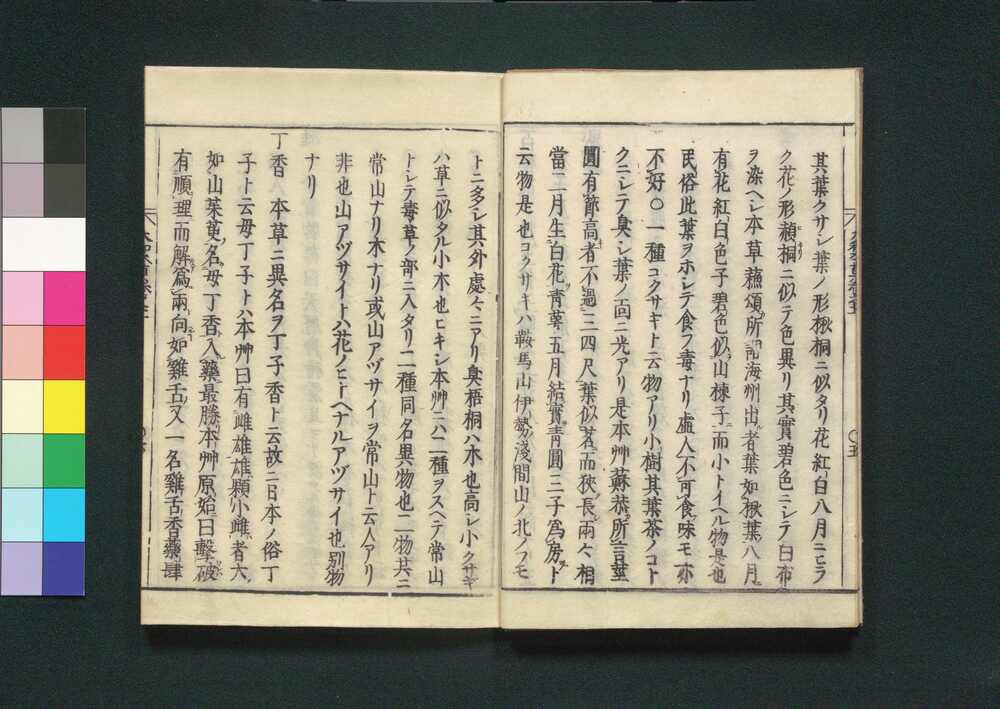 其葉クサシ葉ノ形椒桐ニ似タリ花紅白八月ニヒラ
ク花ノ形赬桐ニ似テ色異リ其實碧色ニシテ白布
ヲ染ヘシ本草蘓頌所謂海州出者葉如楸葉八月
有花紅白色子碧色似山楝子而小トイヘル物是也
民俗此葉ヲホシテ食フ毒ナリ虚人不可食味モ亦
不好〇一種コクサキト云物アリ小樹其葉茶ノコト
クニシテ臭シ葉ノ面ニ光アリ是本艸蘇恭所言莖
圓有節高者不過三四尺葉似茗而狹長兩々相
當二月生白花青萼五月結實青圓三子為房ト
云物是也コクサキハ鞍馬山伊勢淺間山ノ北ノフモ
トニ多シ其外處々ニアリ臭梧桐ハ木也高シ小クサギ
ハ草ニ似タル小木也ヒキシ本艸ニハ二種ヲスヘテ常山
トシテ毒草ノ部ニ入タリ二種同名異物也二物共ニ
常山ナリ木ナリ或山アヅサイヲ常山ト云人アリ
非也山アヅサイトハ花ノヒトヘナルアヅサイ也別物
ナリ
丁香 本草ニ異名ヲ丁子香ト云故ニ日本ノ俗丁
子ト云母丁子トハ本艸曰有雌雄雄顆小雌者大
如山茱萸名母丁香入藥最勝本艸原始曰擊破
有順理而解為兩向如雞舌又一名雞舌香藥肆